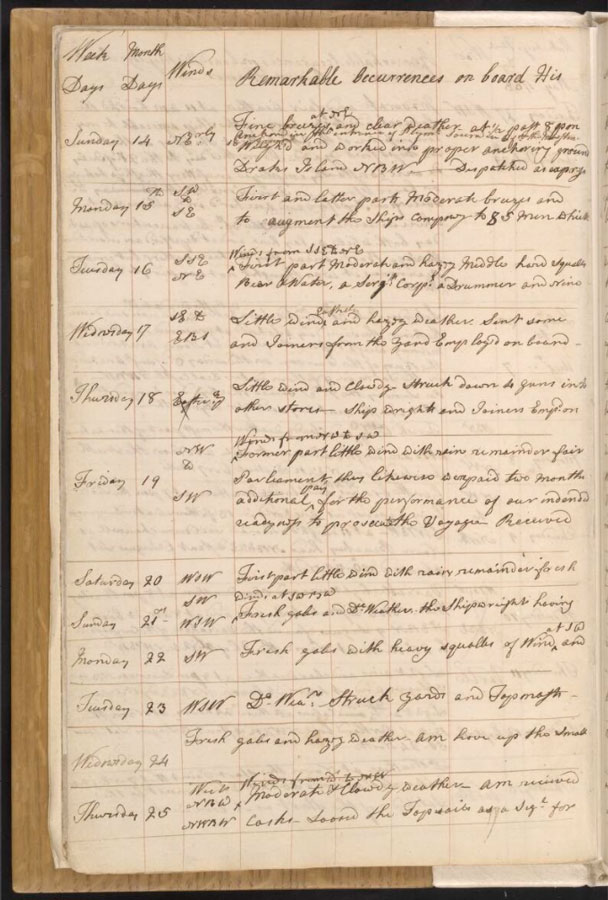 Week Month
Days Days Winds Remarkable Occurrences on board His
at NE
Fine breezes and clear Weather at ½ past 8 pon
Sunday 14 NE.rly
Weigh'd and Worked into proper anchoring ground
Drakes Island NBW Dispatched an expys
Monday 15th SW First and latter parts Moderate breezes and
&
SE to augment the Ships Company to 85 Men which
Winds from SSE to NE
Tuesday 16 SSE First part Moderate and hazey Middle hard squalls
NE Beer & Water, a Serjt Corpl a Drummer and Nine
Wednesday 17 SE & Little Wind and hazey Weather Sent some
EBS and Joiners from the Yard Employ'd on board
Thursday 18 Little Wind and Clowdy Struck down 4 guns into
other stores Ship wrights and Joiners Emp on
Winds from NW to SW
NW Former part little Wind with rain remainder fair
&
Friday 19 Parliament, they likewise were paid two months
pay
SW additional for the performance of our intended
readyness to prosecute the Voyage Received
Saturday 20 WSW First part little Wind with rain remainder fresh
Wind at SW
SW
Sunday 21st WSW Fresh gales and Do Weather the Shipwrights having
at SW
Monday 22 SW Fresh gales with heavy squalls of Wind and
Tuesday 23 WSW Do Wear Struck Yards and Topmasts
Fresh gales and hazey Weather am hove up the Small
Wednesday 24
Winds from W to NW
West
Thursday 25 NBW Moderate & Clowdy Weather am received
NWBW Casks Loosed the Topsails as a Sigl for